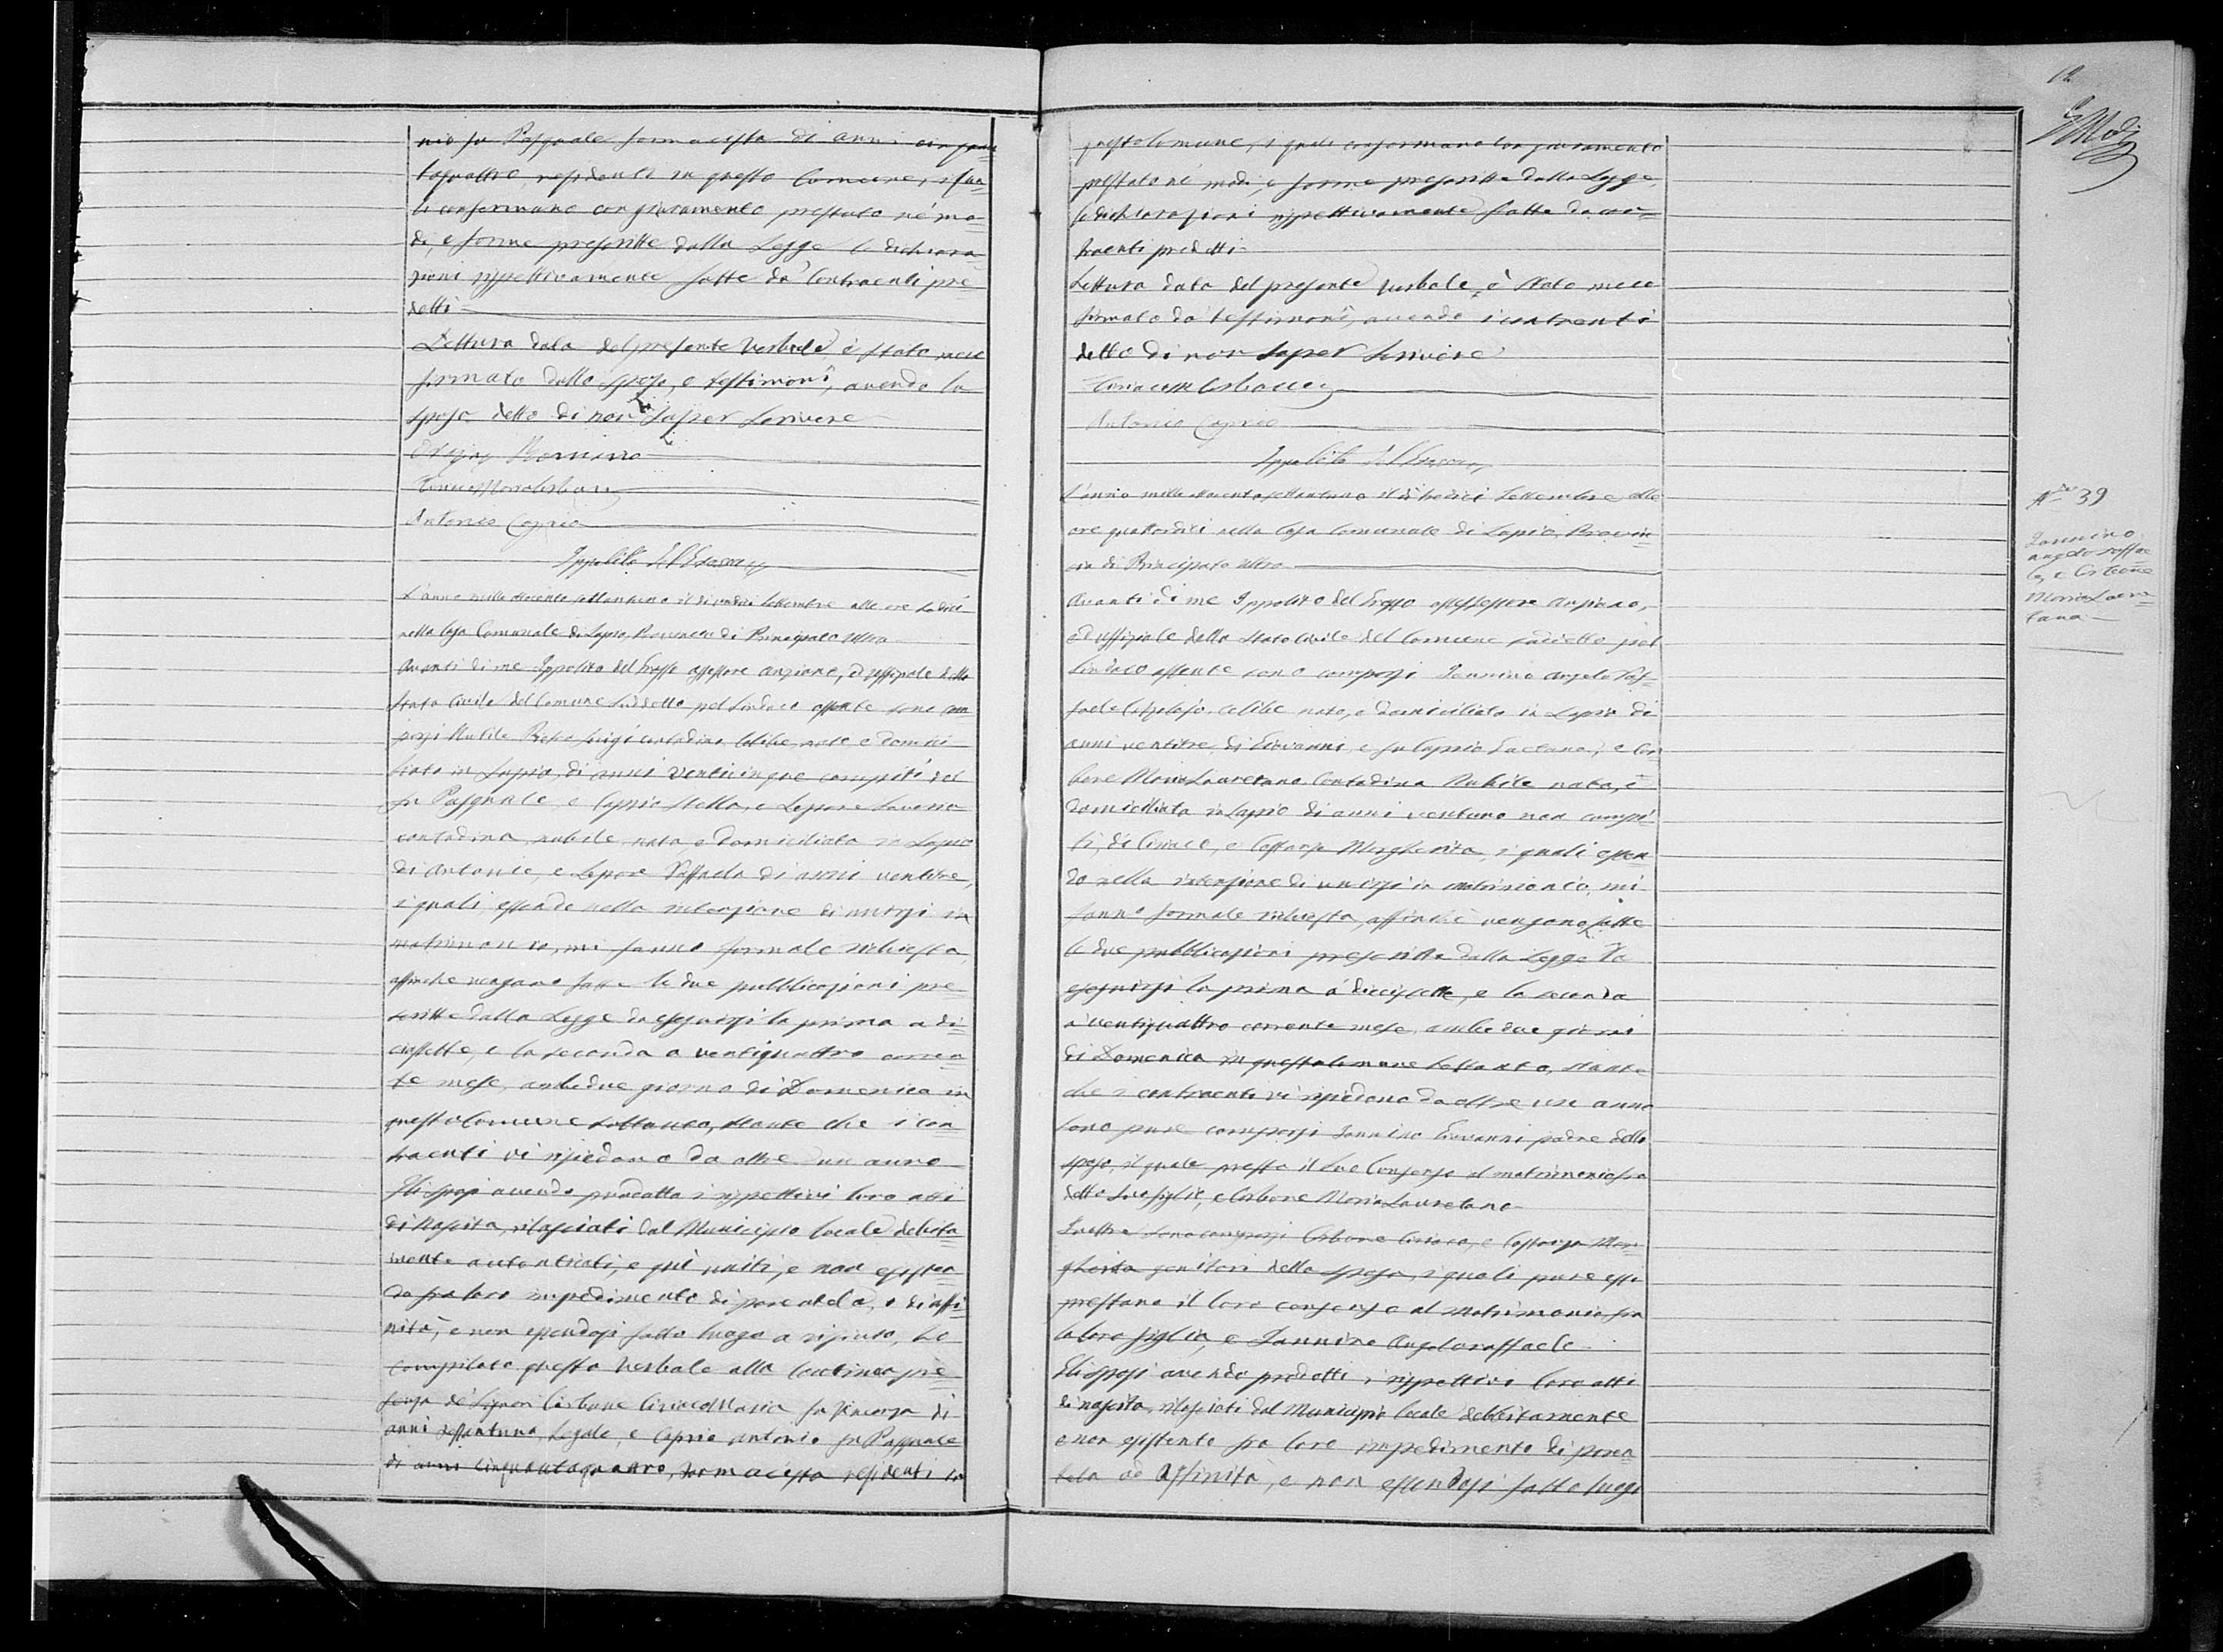 nio fu Pasquale farmacista di anni cinquan=
taquattro, residenti in questo Comune, i qua=
li confermano con giuramento prestato ne' mo=
di, e forme prescritte dalla Legge le dichiara=
zioni rispettivamente fatte da' Contraenti pre=
detti
Lettura data del presente Verbale è stato meco
firmato dallo sposo, e testimonî, avendo la
sposa detto di non saper scrivere
Antonio Caprio
Ippolito Del
L'anno mille ottocento settantuno il dì undici Settembre alle ore sedici
nella Casa Comunale di Lapio, Provincia di Principato Ultra
Avanti di me Ippolito del Grosso assessore anziano, ed uffiziale dello
Stato Civile del Comune suddetto pel Sindaco assente sono com
parsi Rutilo Luigi contadino celibe, nato e domici
liato in Lapio, di anni venticinque compiti del
fu Pasquale, e Caprio Stella, e Lepore Saveria
contadina, nubile, nata e domiciliata in Lapio
di Antonio, e Lepore Raffaela di anni ventitre,
i quali, essendo nella intenzione di unirsi in
matrimonio, mi fanno formale richiesta,
affinche vengano fatte le due pubblicazioni pre=
scritte dalla Legge da eseguirsi la prima a di=
ciassette, e la seconda a ventiquattro corren=
te mese, ambidue giorno di Domenica in
questo Comune soltanto, stante che i con=
traenti vi risiedono da oltre un anno
Gli sposi avendo prodotto i rispettivi loro atti
di nascita, rilasciati dal Municipio locale debita=
mente autenticati, e quì uniti, e non esisten=
do fra loro impedimento di parentela, o di affi=
nità, e non essendosi fatto luogo a rifiuto, ho
compilato questo verbale alla continua pre=
senza de' Signori Carbone Ciriaco Maria fu Vincenzo di
anni settantuno, Legale, e Caprio Antonio fu Pasquale
di anni cinquantaquattro, farmacista residenti in
12
questo Comune, i quali confermano con giuramento
prestato ne' modi, e forme prescritte dalla Legge,
le dichiarazioni rispettivamente fatte da con=
traenti predetti
Lettura data del presente verbale, è stato meco
firmato da' testimonî, avendo i contrenti
detto di non saper scrivere
Antonio Caprio
Ippolito Del
L'anno mille ottocentosettantuno il dì tredici Settembre alle
ore quattordici nella Casa Comunale di Lapio, Provin=
cia di Principato Ultra
Avanti di me Ippolito del Grosso assessore anziano,
ed uffiziale dello Stato Civile del Comune suddetto pel
Sindaco assente sono comparsi Iannino Angelo Raf=
faele celibe nato, e domiciliato in Lapio di
anni ventitre, di Giovanni, e fu Caprio Gaetana, e Car=
bone Maria Lauretana Contadina Nubile nata, e
domiciliata in Lapio di anni ventuno non compi=
ti, di Ciriaco, e Margherita, i quali essen=
do nella intenzione di unirsi in matrimonio, mi
fanno formale richiesta, affinchè vengano fatte
le due pubblicazioni prescritte dalla Legge da
eseguirsi la prima a' diecissette, e la seconda
a' ventiquattro corrente mese, ambedue giorni
di Domenica in questo Comune soltanto, stante
che i contraenti vi risiedono da oltre un anno
Sono pure comparsi Iannino Giovanni padre dello
sposo, il quale presta il suo consenso al matrimonio fra
detto suo figlio, e Carbone Maria Lauretana
Inoltre sono comparsi Carbone Ciriaco, e Mar=
gherita genitori della sposa, i quali pure essi
prestano il loro consenso al matrimonio fra
la loro figlia, e Iannino Angeloraffaele
Gli sposi avendo prodotti i rispettivi loro atti
di nascita, rilasciati dal Municipio locale debbitamente
e non esistente fra loro impedimento di paren
tela od affinità, e non essendosi fatto luogo
N. 39
Iannino
Angeloraffae
le, e Carbone
Maria Laure=
tana